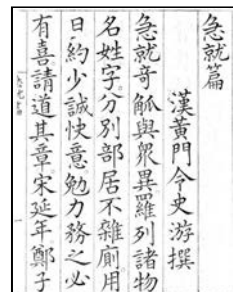 急就篇
漢黃門令史游撰
急就奇觚與衆異羅列諸物
名姓字分別部居不雜廁用
日約少誠快意勉力務之必
有喜請道其章宋延年鄭子